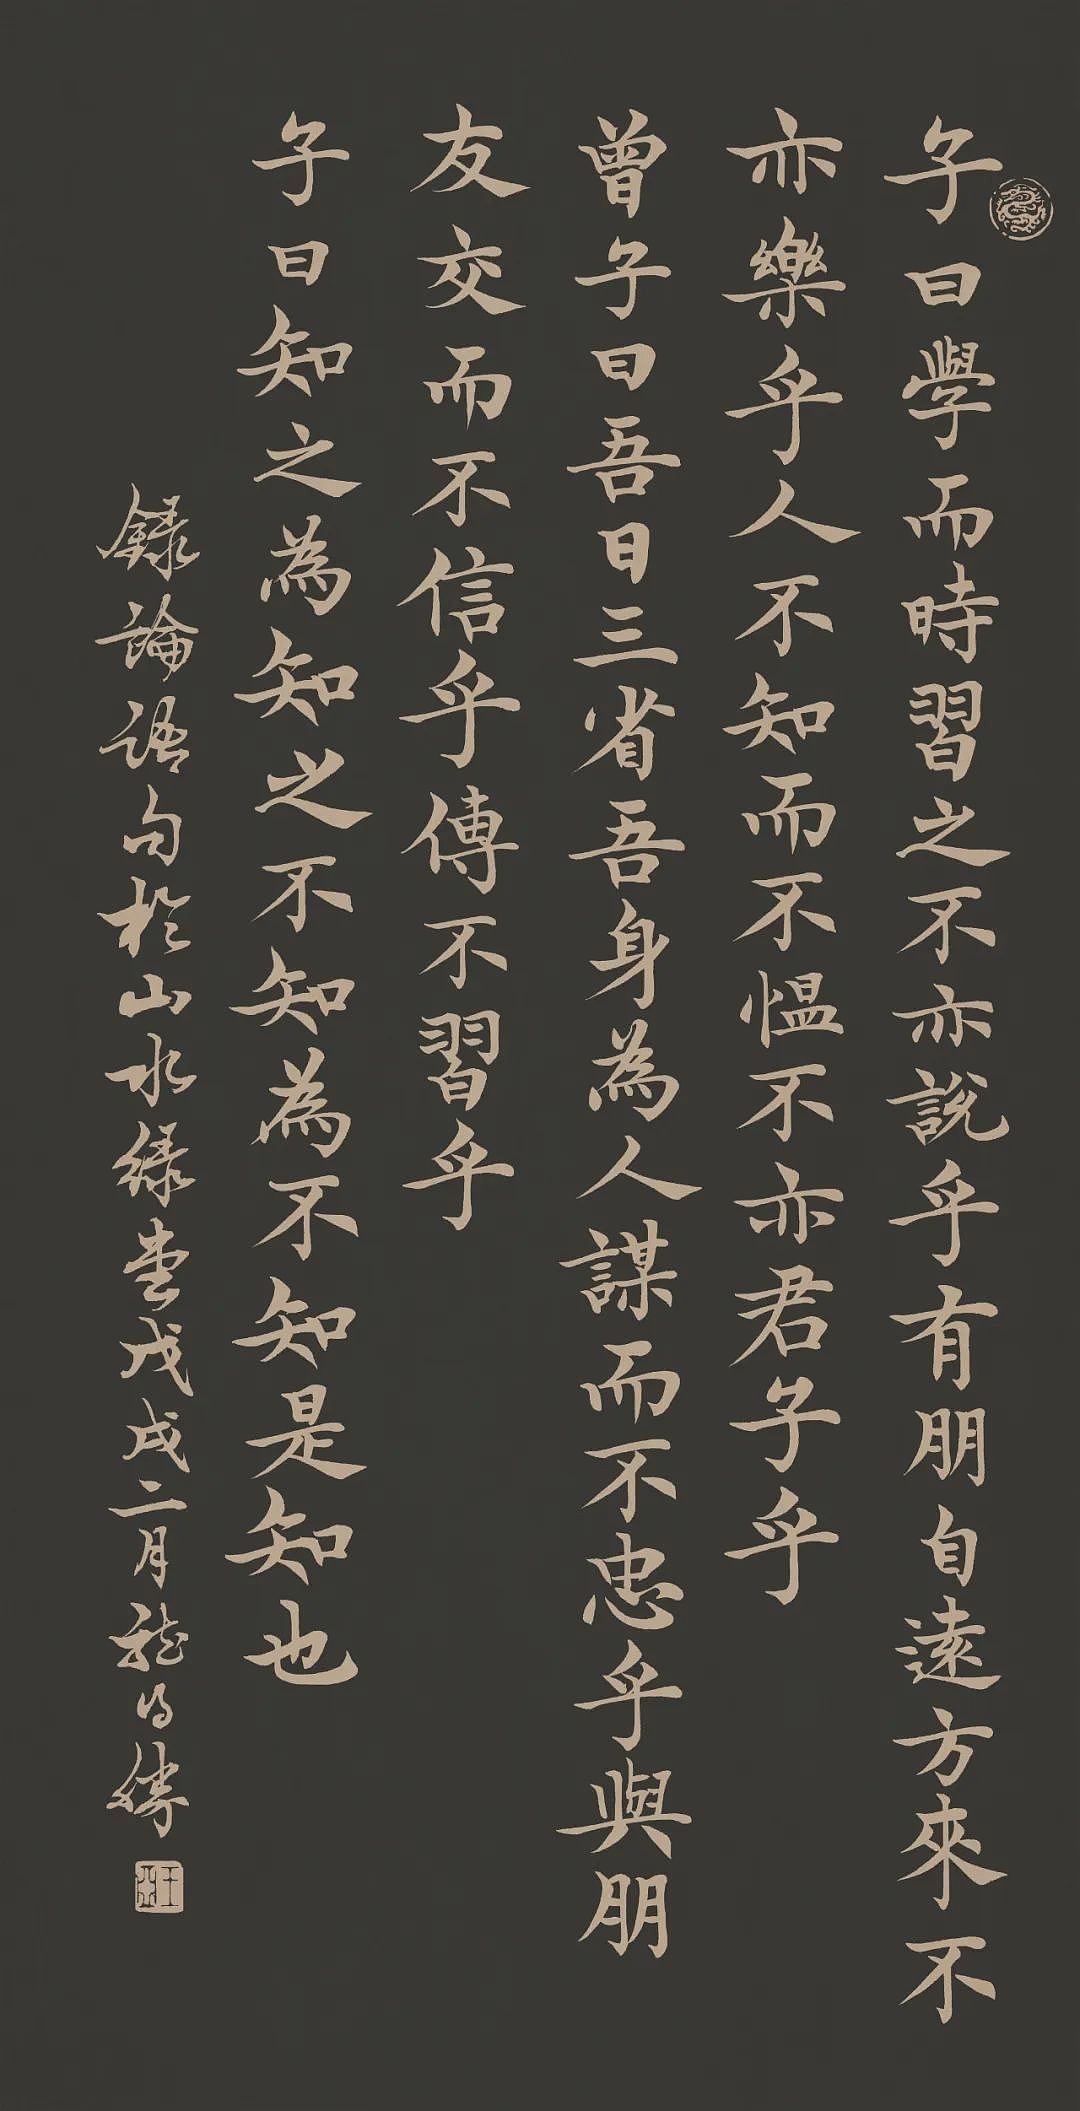 子曰學而時習之不亦說乎有朋自遠方來不
亦樂乎人不知而不愠不亦君子乎
曾子曰吾日三省吾身為人謀而不忠乎與朋
友交而不信乎傳不習乎
子曰知之為知之不知為不知是知也
錄論語句於山水綠堂戊戌二月